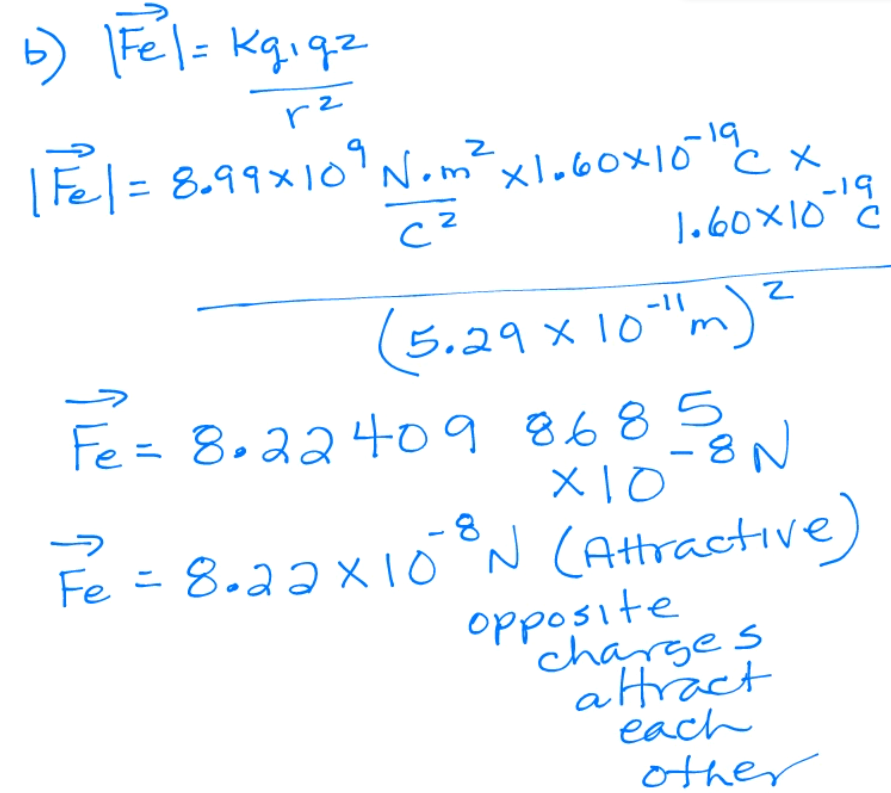 b) |F⃗e| = kq₁q₂
r²
|F⃗e| = 8.99×10⁹ N·m² ×1.60×10⁻¹⁹C ×
C² 1.60×10⁻¹⁹C
(5.29 × 10⁻¹¹m)²
F⃗e = 8.22409 8685
×10⁻⁸N
F⃗e = 8.22×10⁻⁸N (Attractive)
opposite
charges
attract
each
other